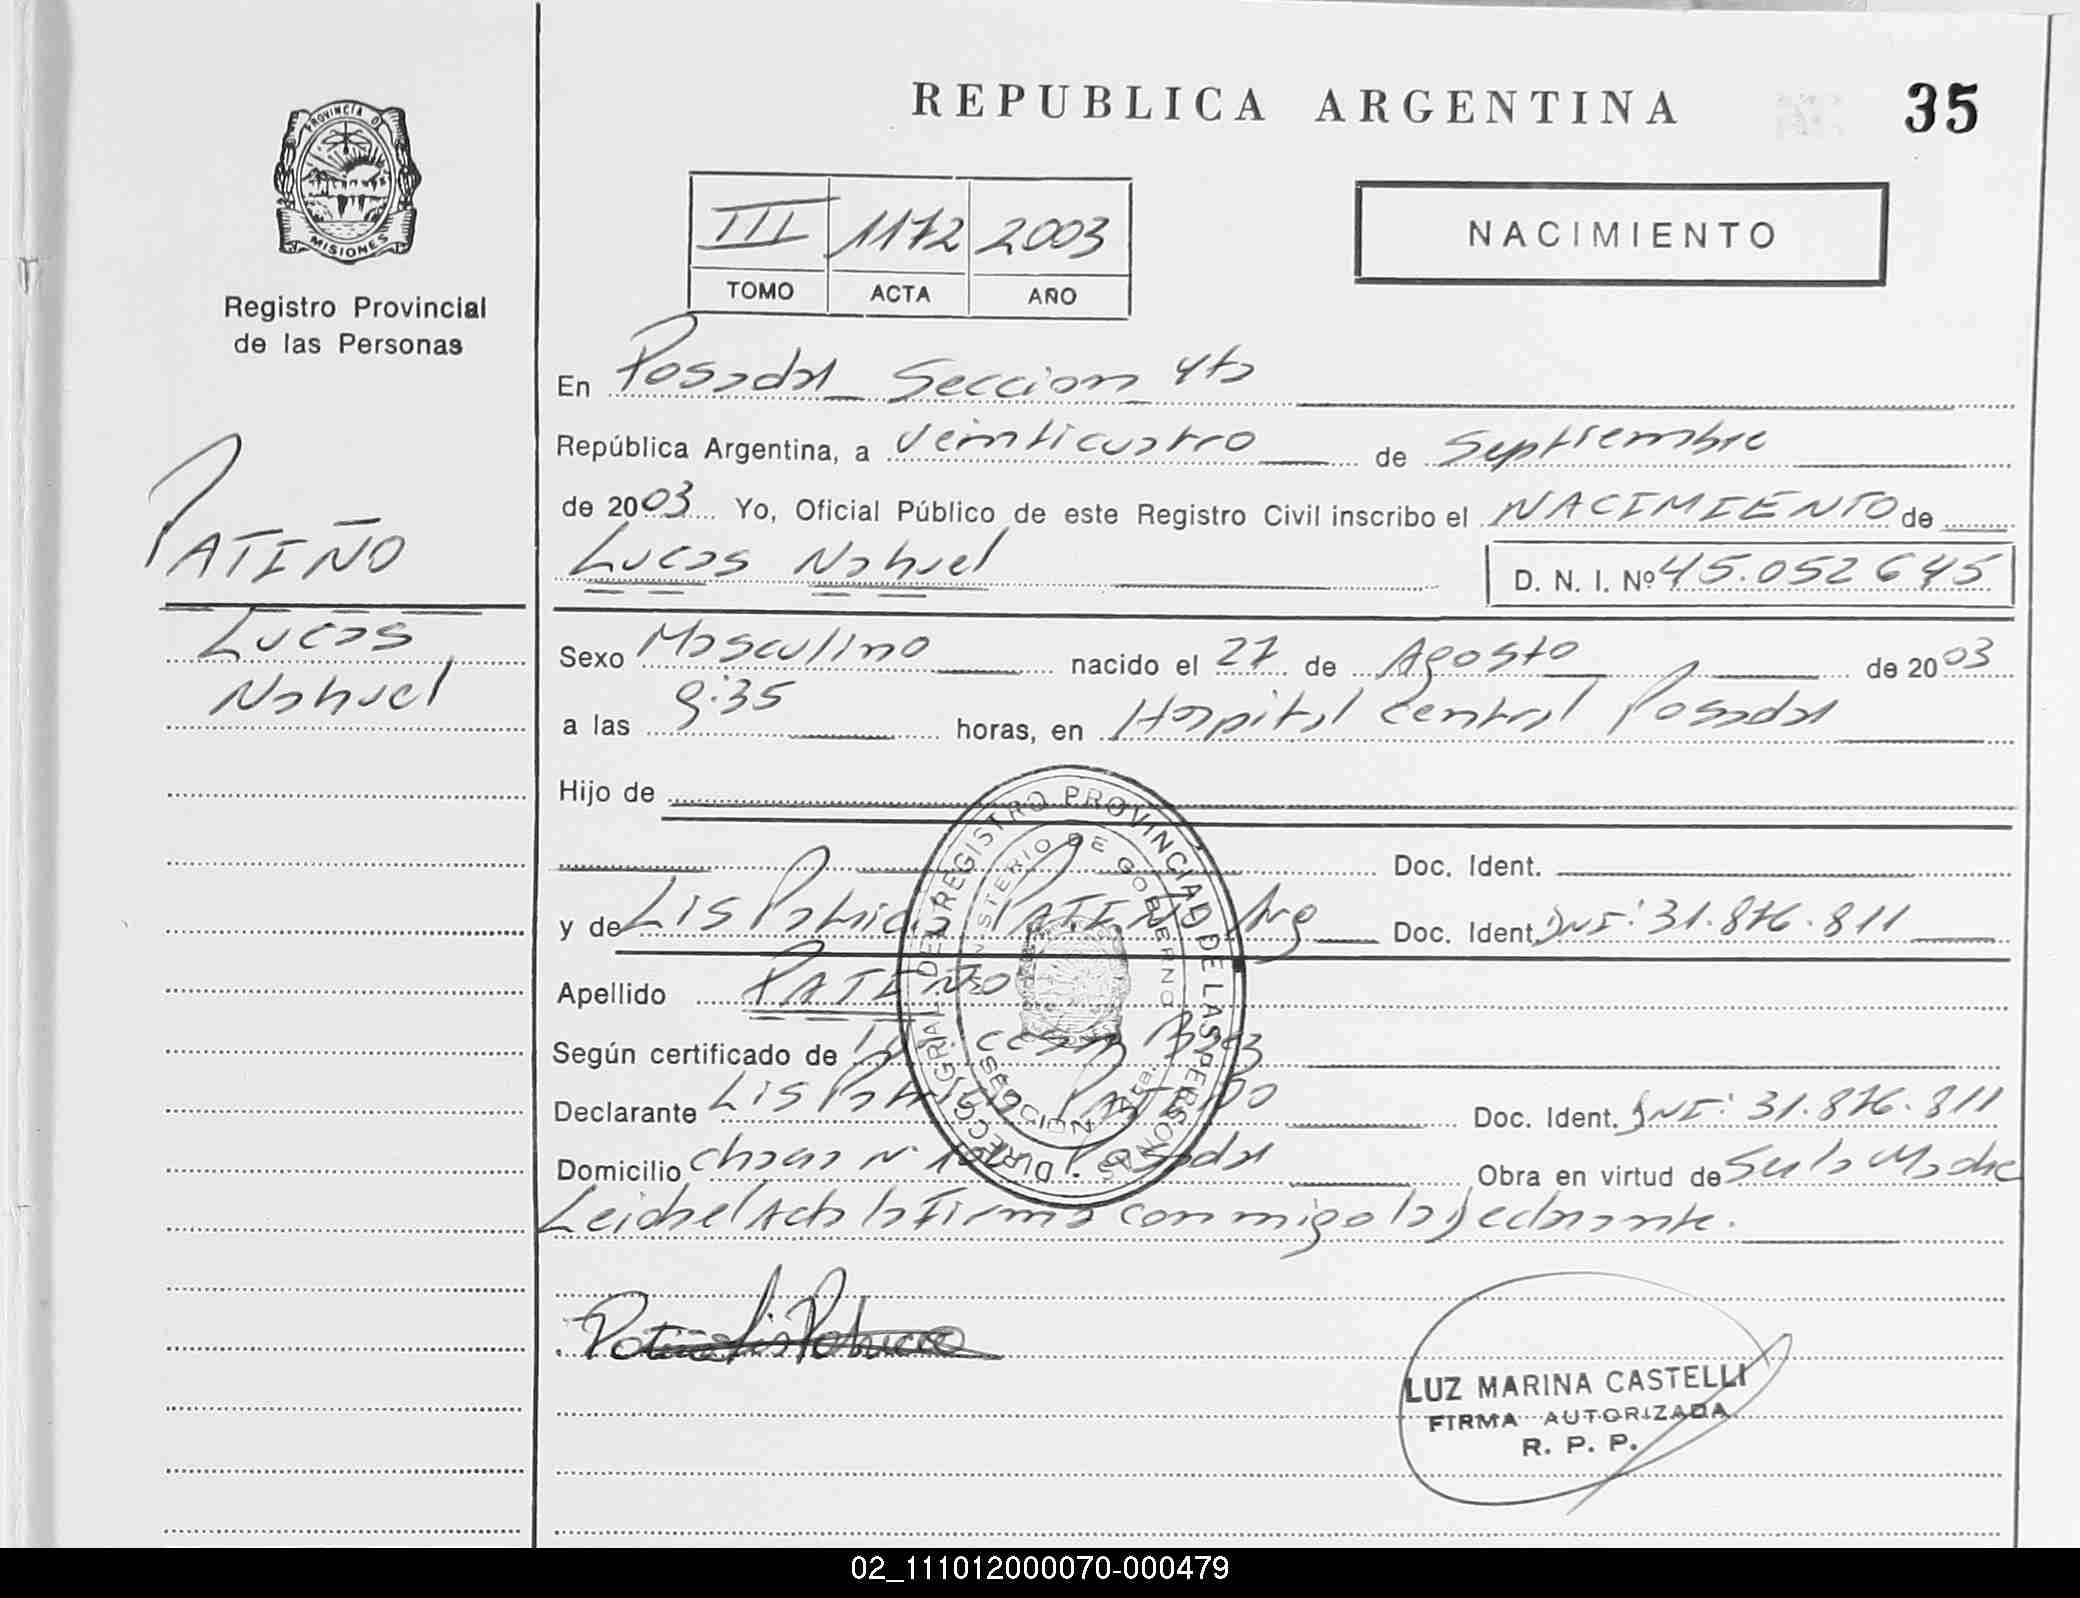 REPUBLICA ARGENTINA
35
PROVINCIA D
MISIONES
Registro Provincial
de las Personas
III 1172 2003
TOMO ACTA AÑO
NACIMIENTO
En Posadas Seccion 4ta
República Argentina, a veinticuatro de Septiembre
de 2003 Yo, Oficial Público de este Registro Civil inscribo el NACIMIENTO de
Lucas Nahuel D. N. I. Nº 45.052645
PATIÑO
Lucas
Nahuel
Sexo Masculino nacido el 27 de Agosto de 2003
a las 9:35 horas, en Hospital Central Posadas
Hijo de
Doc. Ident.
y de Lis Patricia PATIÑO Arg Doc. Ident. DNI: 31.876.811
Apellido PATIÑO
Según certificado de
Declarante Lis Patricia PATIÑO Doc. Ident. DNI: 31.876.811
Domicilio Chacra Nº Posadas Obra en virtud de Ser la Madre
Leida el Acta la Firma conmigo la Declarante.
DIRECC. GRIAL. DEL REGISTRO PROVINCIAL DE LAS PERSONAS
MINISTERIO DE GOBIERNO
SECCION 4ta.
Patiño Lis Patricia
LUZ MARINA CASTELLI
FIRMA AUTORIZADA
R. P. P.
02_111012000070-000479